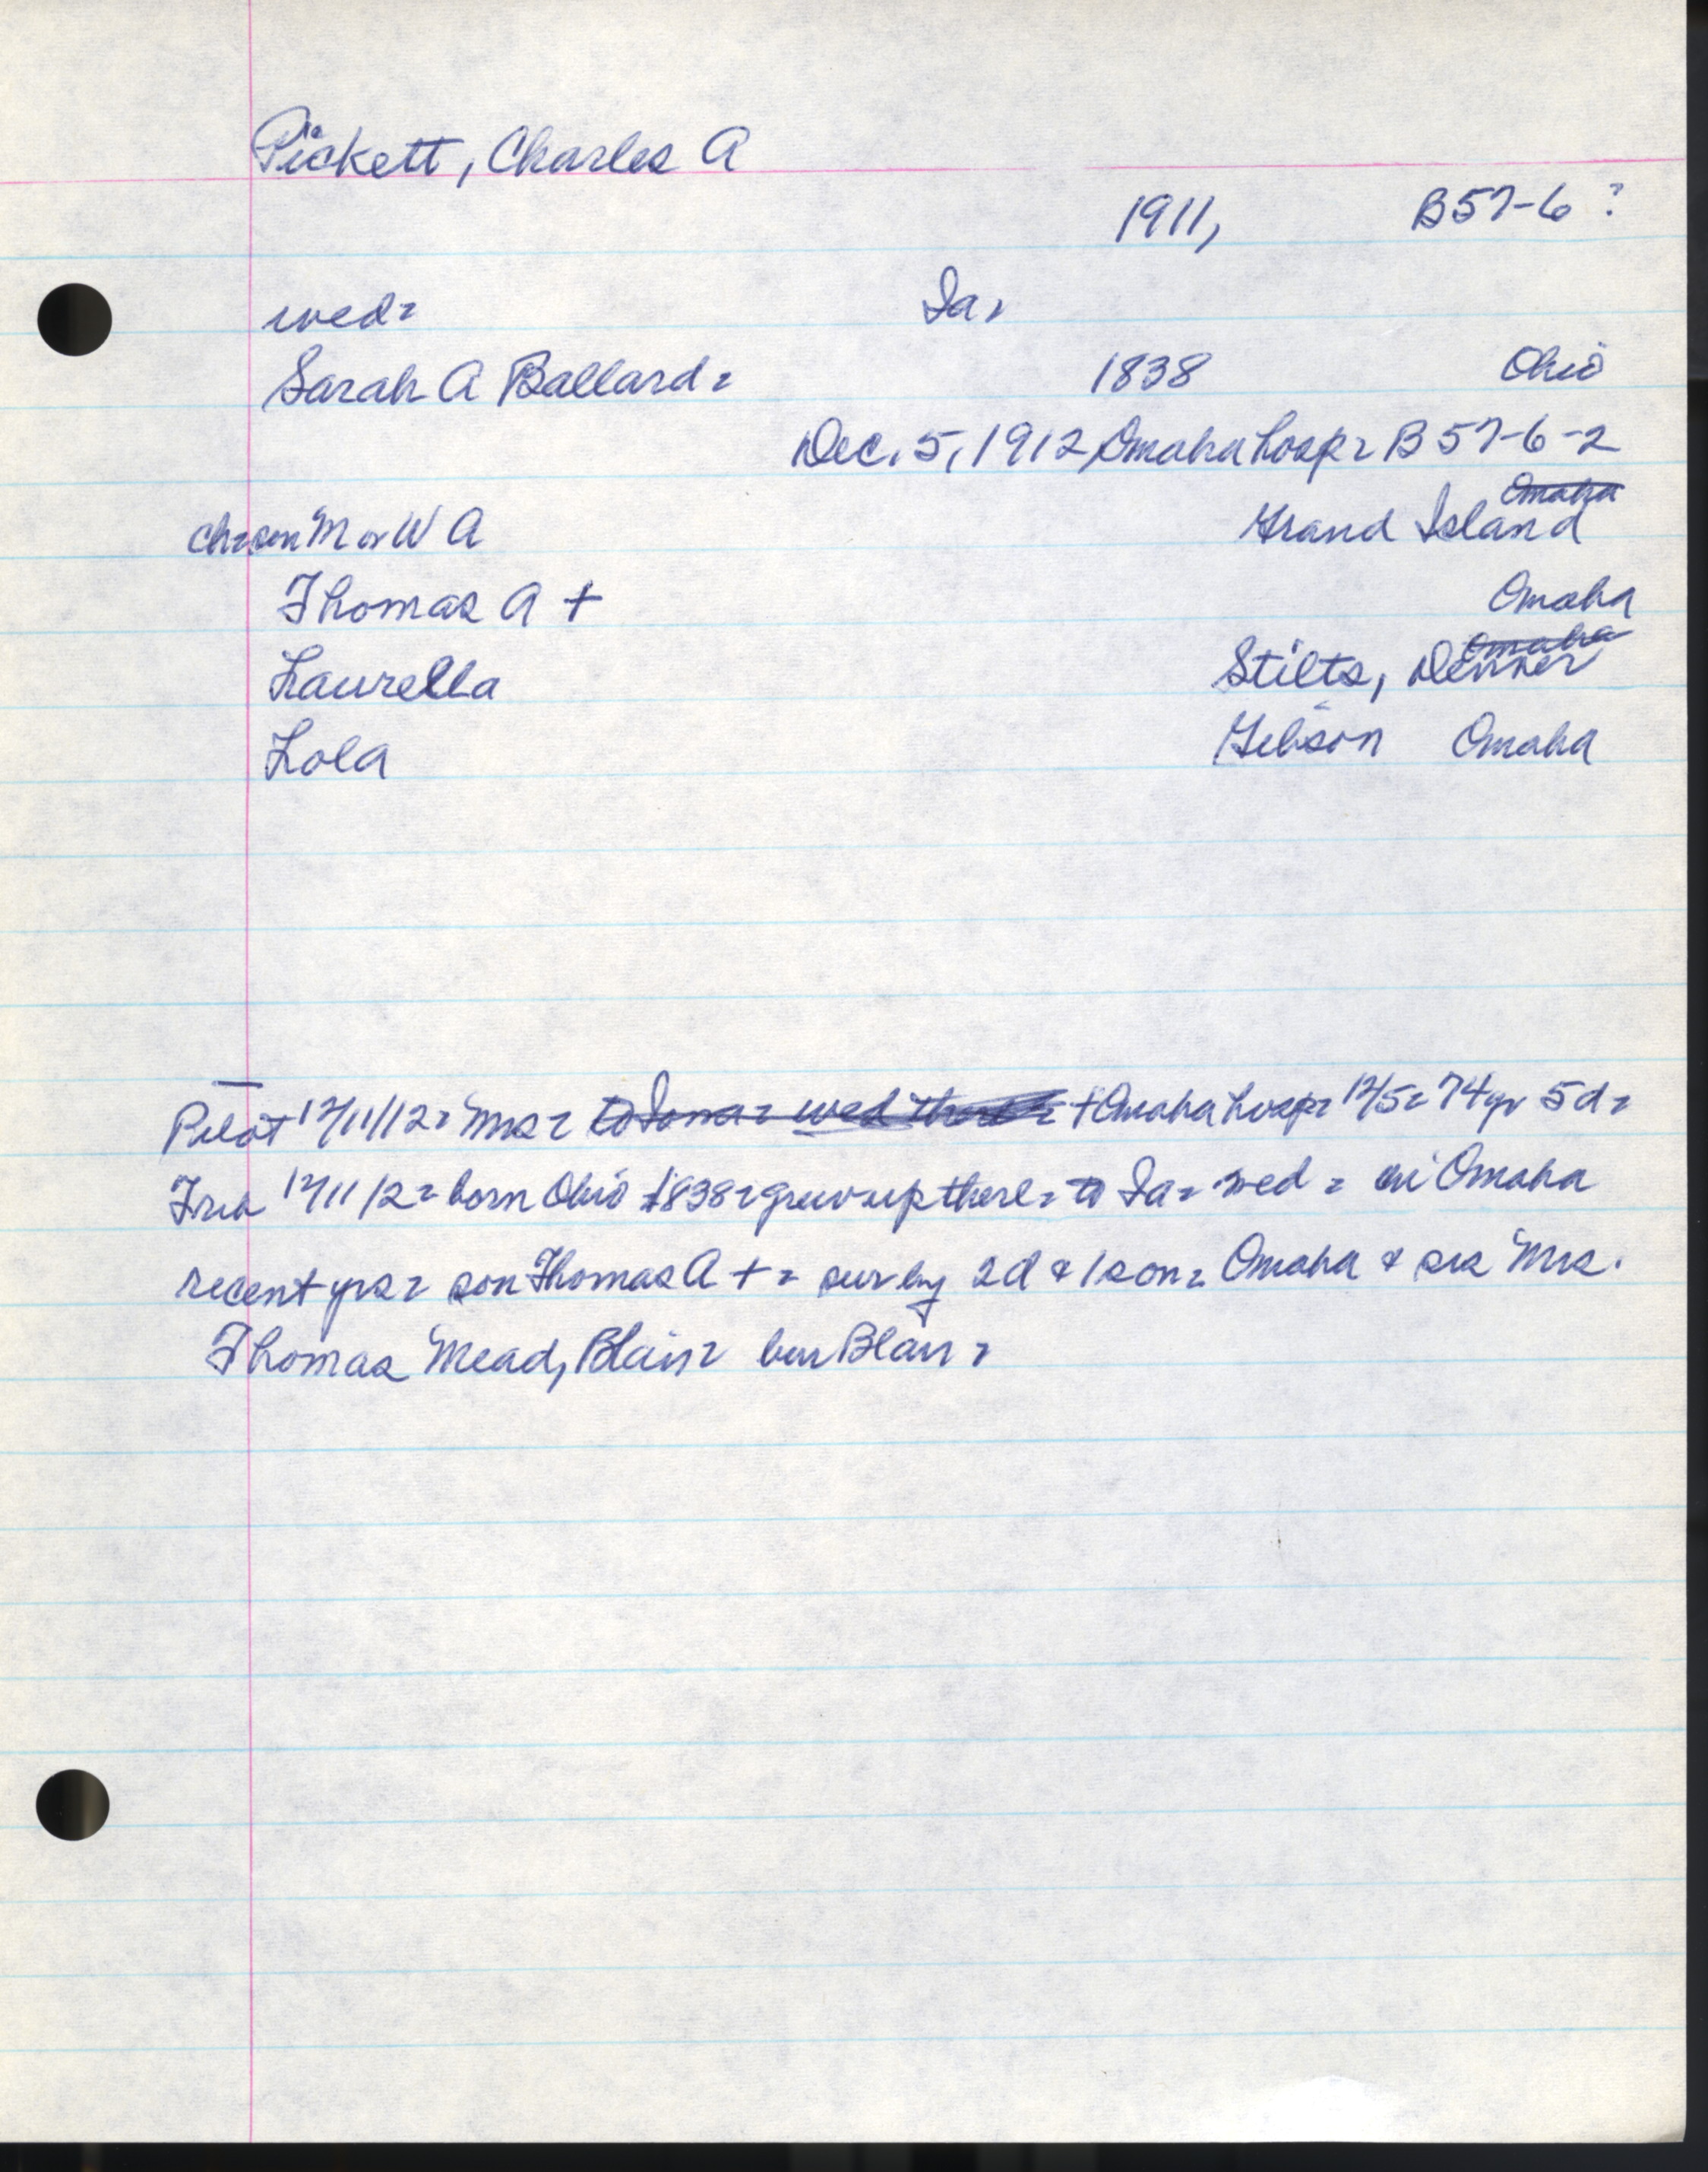 Pickett, Charles A
1911, B57-6 ?
wed- Ia,
Sarah A Ballard- 1838 Ohio
Dec. 5, 1912 Omaha hosp- B57-6-2
Omaha
ch-son M or W A Grand Island
Thomas A + Omaha
Omaha
Laurella Stilts, Denver
Lola Gibson Omaha
Pilot 12/11/12- Mrs- to Iowa- wed there- + Omaha hosp- 12/5- 74yr 5d-
Trib 12/11/12- born Ohio 1838- grew up there- to Ia- wed- in Omaha
recent yrs- son Thomas A +- sur by 2d & 1 son- Omaha & sis Mrs.
Thomas Mead, Blair- bur Blair-